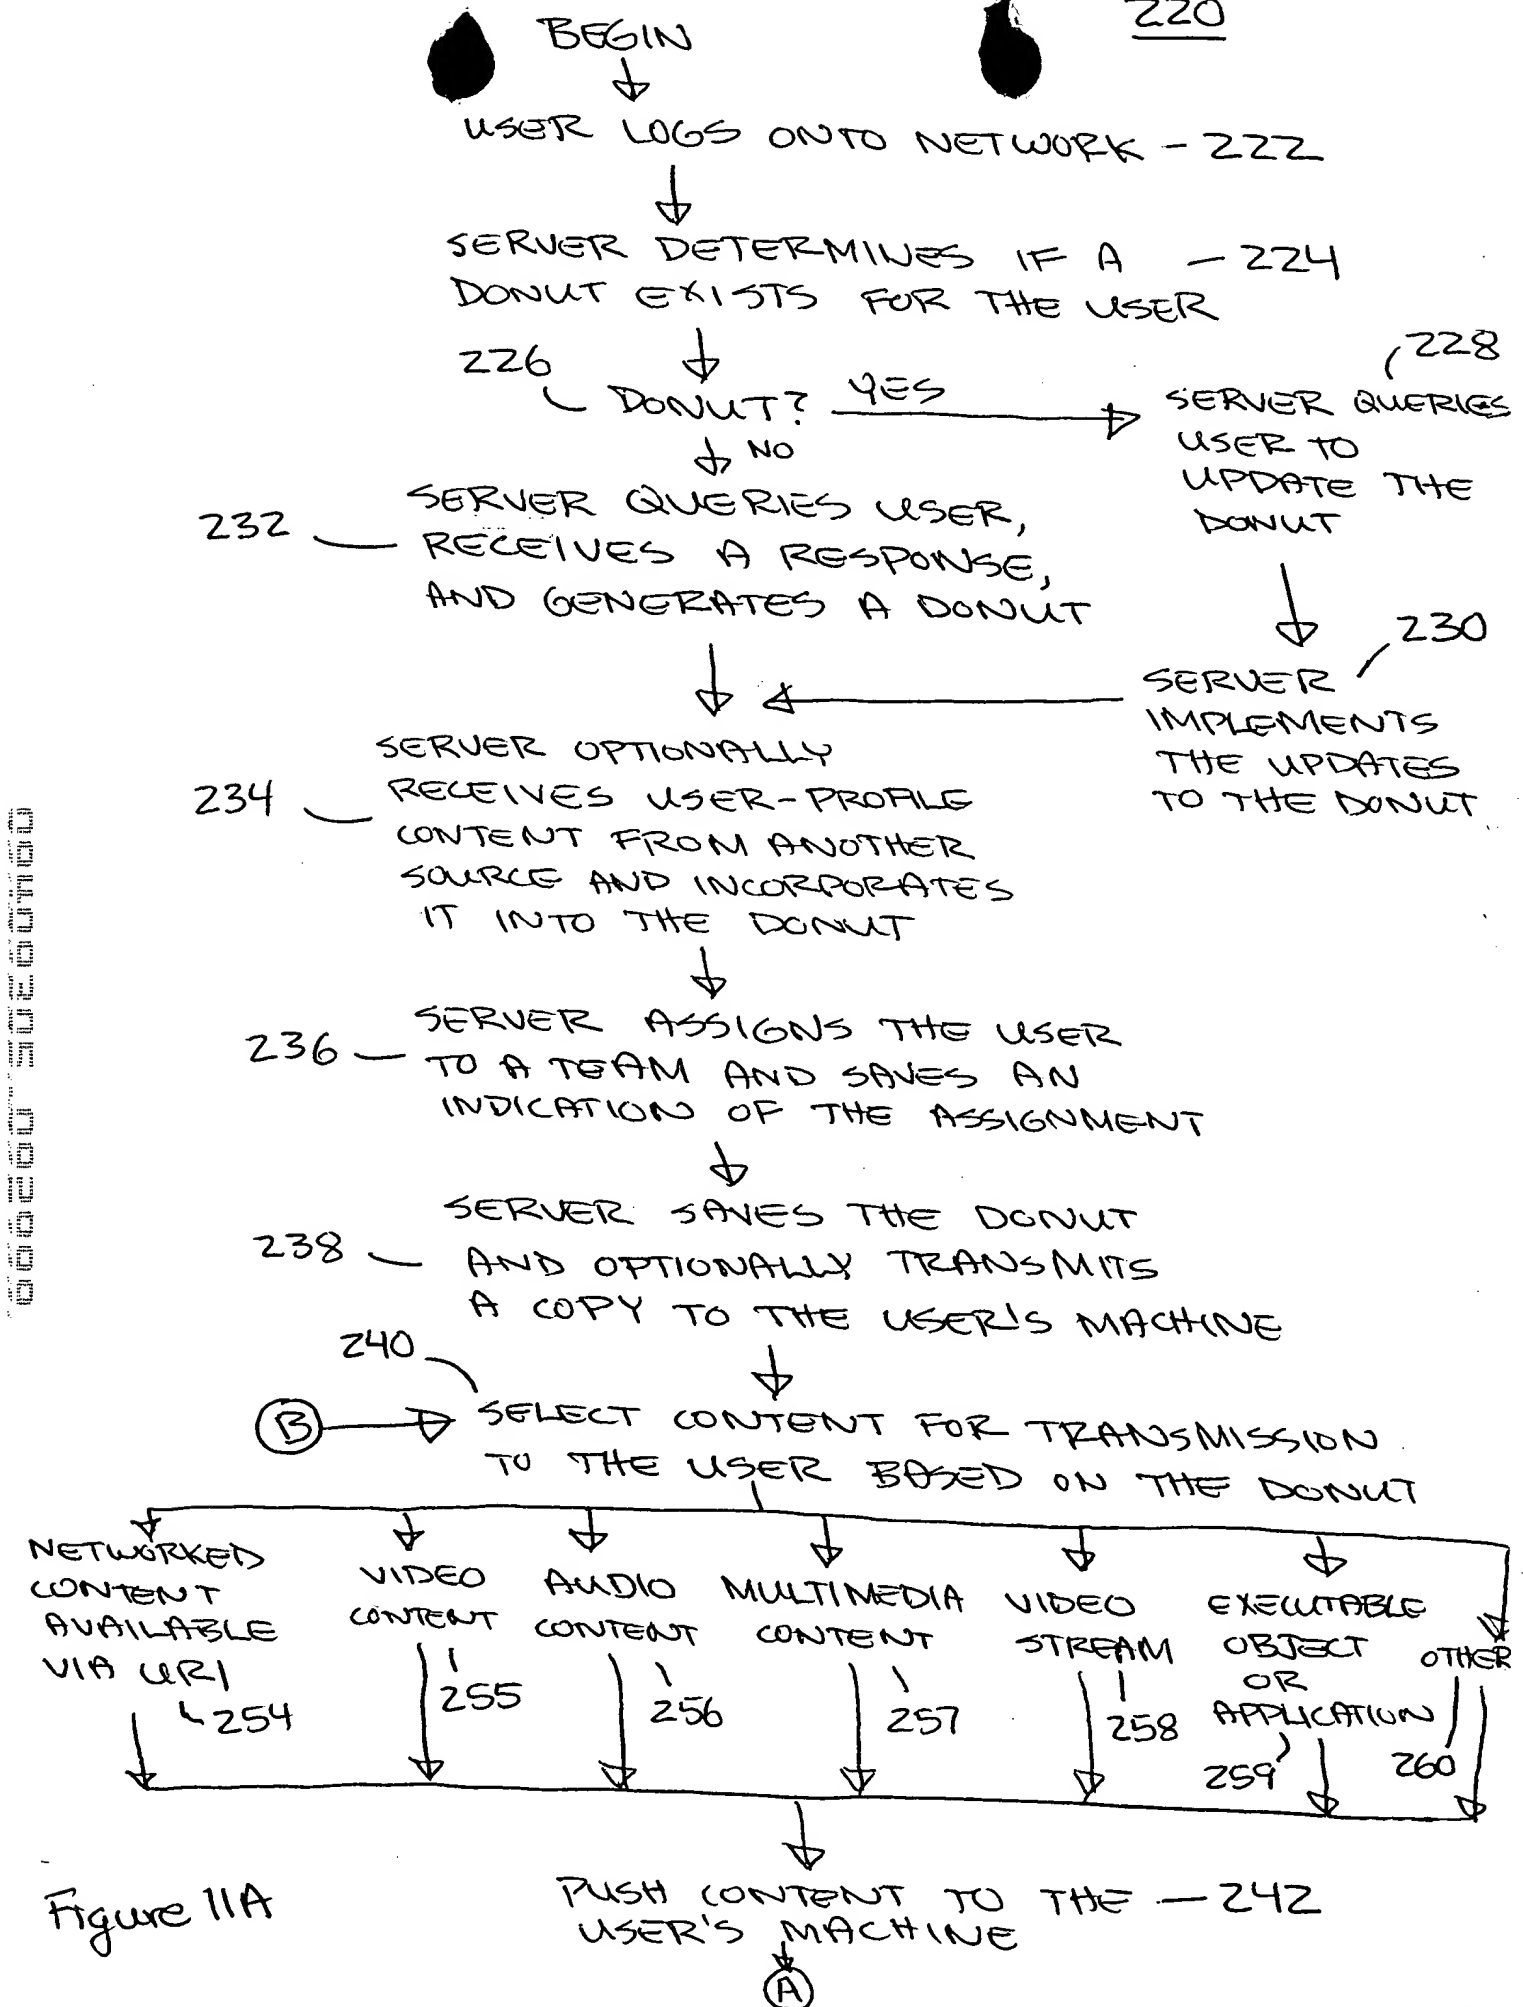 220
BEGIN
USER LOGS ONTO NETWORK - 222
SERVER DETERMINES IF A - 224
DONUT EXISTS FOR THE USER
226
DONUT?
YES
NO
228
SERVER QUERIES
USER TO
UPDATE THE
DONUT
232
SERVER QUERIES USER,
RECEIVES A RESPONSE,
AND GENERATES A DONUT
230
SERVER
IMPLEMENTS
THE UPDATES
TO THE DONUT
234
SERVER OPTIONALLY
RECEIVES USER-PROFILE
CONTENT FROM ANOTHER
SOURCE AND INCORPORATES
IT INTO THE DONUT
236
SERVER ASSIGNS THE USER
TO A TEAM AND SAVES AN
INDICATION OF THE ASSIGNMENT
238
SERVER SAVES THE DONUT
AND OPTIONALLY TRANSMITS
A COPY TO THE USER'S MACHINE
240
B
SELECT CONTENT FOR TRANSMISSION
TO THE USER BASED ON THE DONUT
NETWORKED
CONTENT
AVAILABLE
VIA URI
254
VIDEO
CONTENT
255
AUDIO
CONTENT
256
MULTIMEDIA
CONTENT
257
VIDEO
STREAM
258
EXECUTABLE
OBJECT
OR
APPLICATION
259
OTHER
260
PUSH CONTENT TO THE - 242
USER'S MACHINE
A
Figure 11A